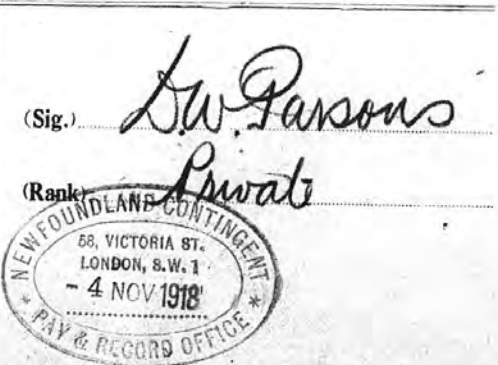 (Sig.) D.W. Parsons
(Rank) Private
NEWFOUNDLAND CONTINGENT
58, VICTORIA ST.
LONDON, S.W. 1
- 4 NOV 1918
* PAY & RECORD OFFICE *